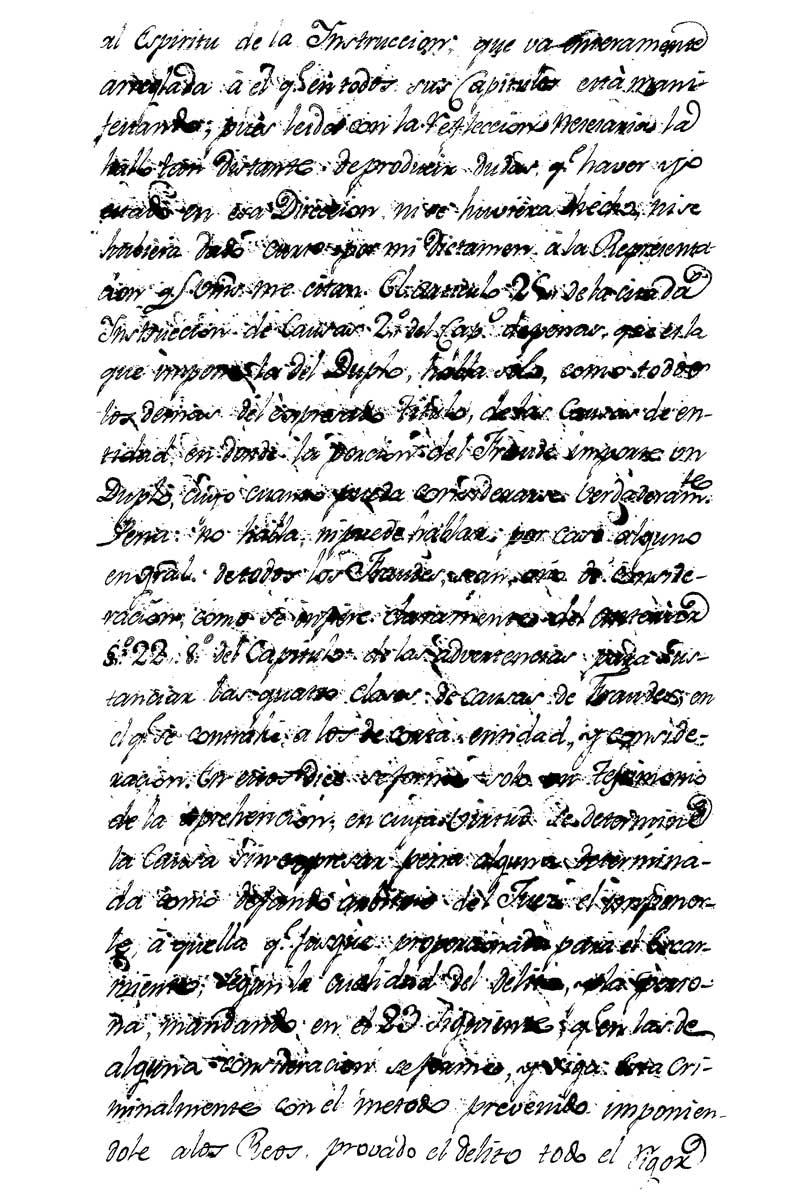 al Espiritu de la Instruccion, que va enteramente
arreglada â el qe. en todos sus Capitulos està mani-
festando; pues leida con la refleccion necesaria la
hallo tan distante de produeir dudas, qe. haver yo
estado en esa Direccion ni se huviera hecho, ni se
hubiera dado curso por mi Dictamen â la Representa
cion qe. Vms. me citan. El articulo 25,, de la citada
Instruccion de Causas 2º. del Capº. de penas, que es la
que impone la del Duplo, habla solo, como todos
los demas del expresado titulo, de las Causas de en-
tidad en donde la porcion del Fraude importe un
Duplo, cuyo cuanto pueda considerarse berdaderamte.
Pena: no habla, ni puede hablar por caso alguno
en gral. de todos los Fraudes, sean, o no de conside-
racion, como se infiere claramente del anterior
§º. 22,, 8º. del Capitulo de las advertencias para sus-
tanciar las quatro clases de causas de Fraudes, en
el qe. se contrahe a los de corta entidad, y conside-
racion. En estos dice se forme solo un testimonio
de la aprehencion, en cuya virtud se determine
la Causa sin expresar pena alguna determina-
da como dejando àrbitrio del Juez el imponer-
le, â quella qe. jusgue proporcionada para el Escar-
miento, segun la cualidad del delito, y la perso-
na, mandando en el 23 siguiente, qe. en las de
alguna consideracion se forme, y siga Esta cri-
minalmente con el metodo prevenido imponien-
dole a los Reos, provado el delito todo el rigor